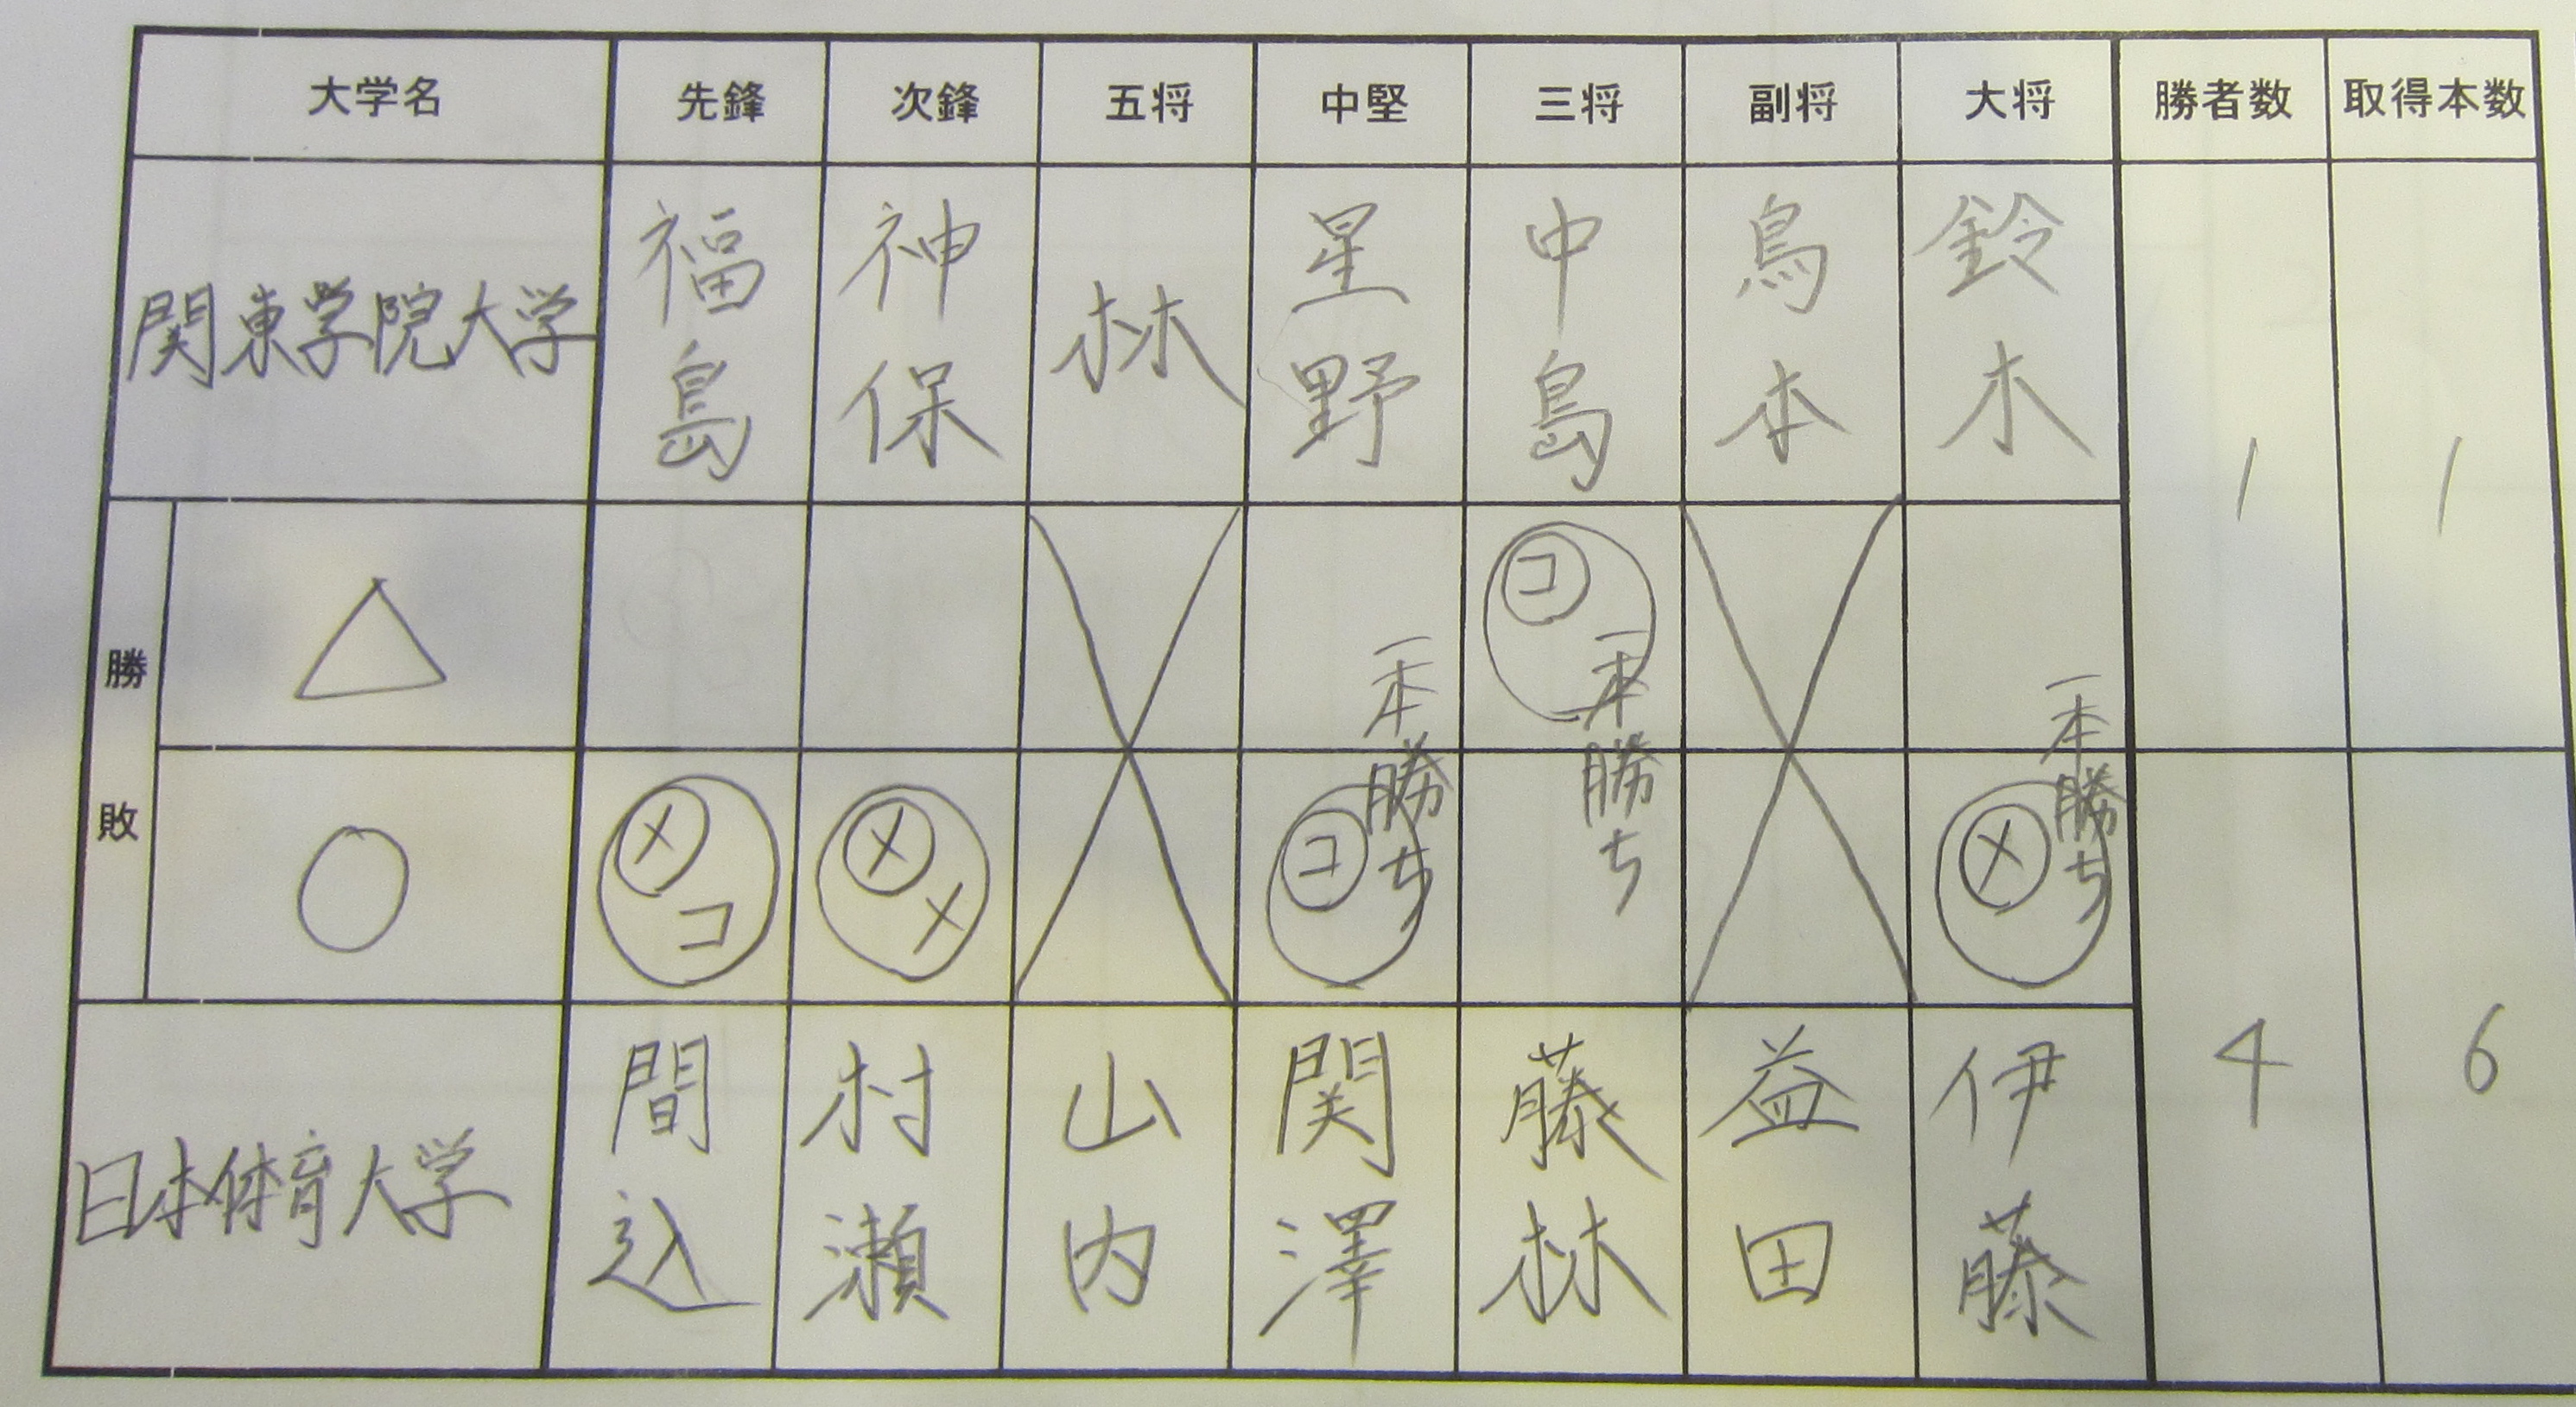 大学名 先鋒 次鋒 五将 中堅 三将 副将 大将 勝者数 取得本数
関東学院大学 福島 神保 林 星野 中島 鳥本 鈴木 1 1
勝敗
△ コ 一本勝ち
○ メコ メメ コ 一本勝ち メ 一本勝ち
日本体育大学 間込 村瀬 山内 関澤 藤林 益田 伊藤 4 6